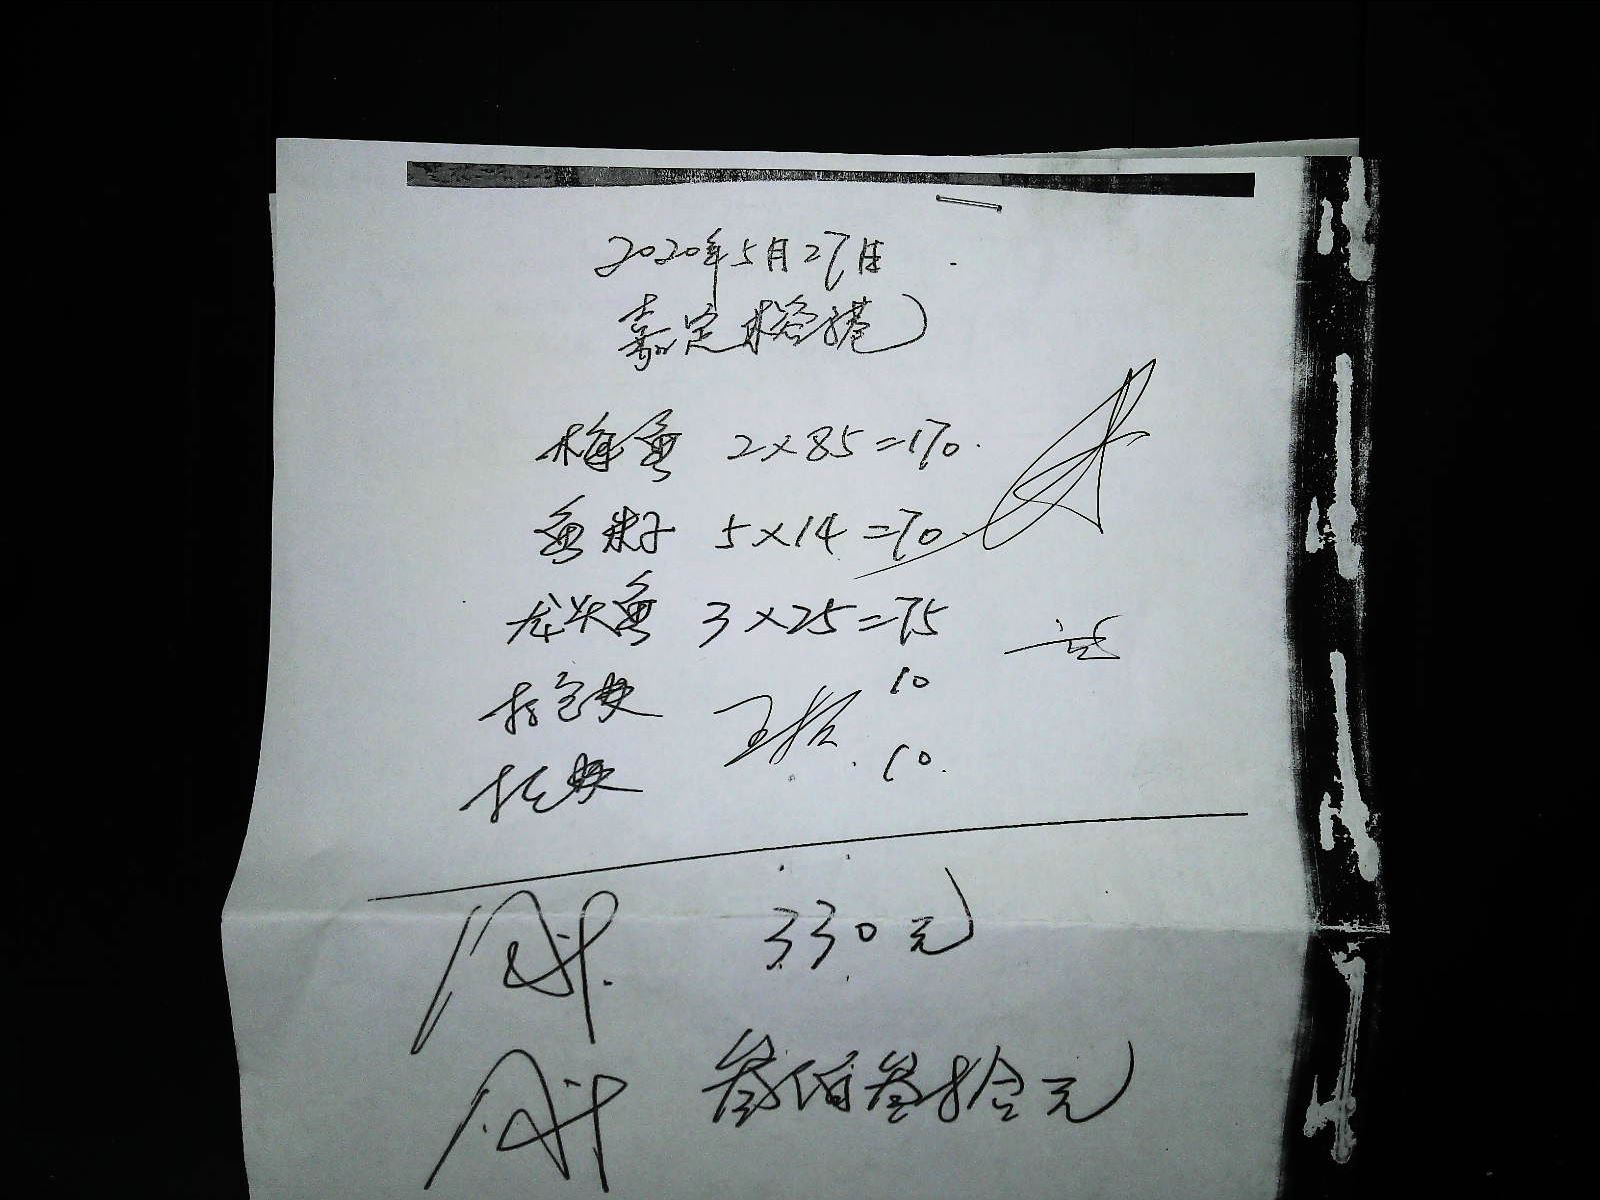 2020年5月27日
嘉定
梅鱼 2×85=170.
鱼籽 5×14=70.
龙头鱼 3×25=75
打包费 10
托费 10.
330元
叁佰叁拾元